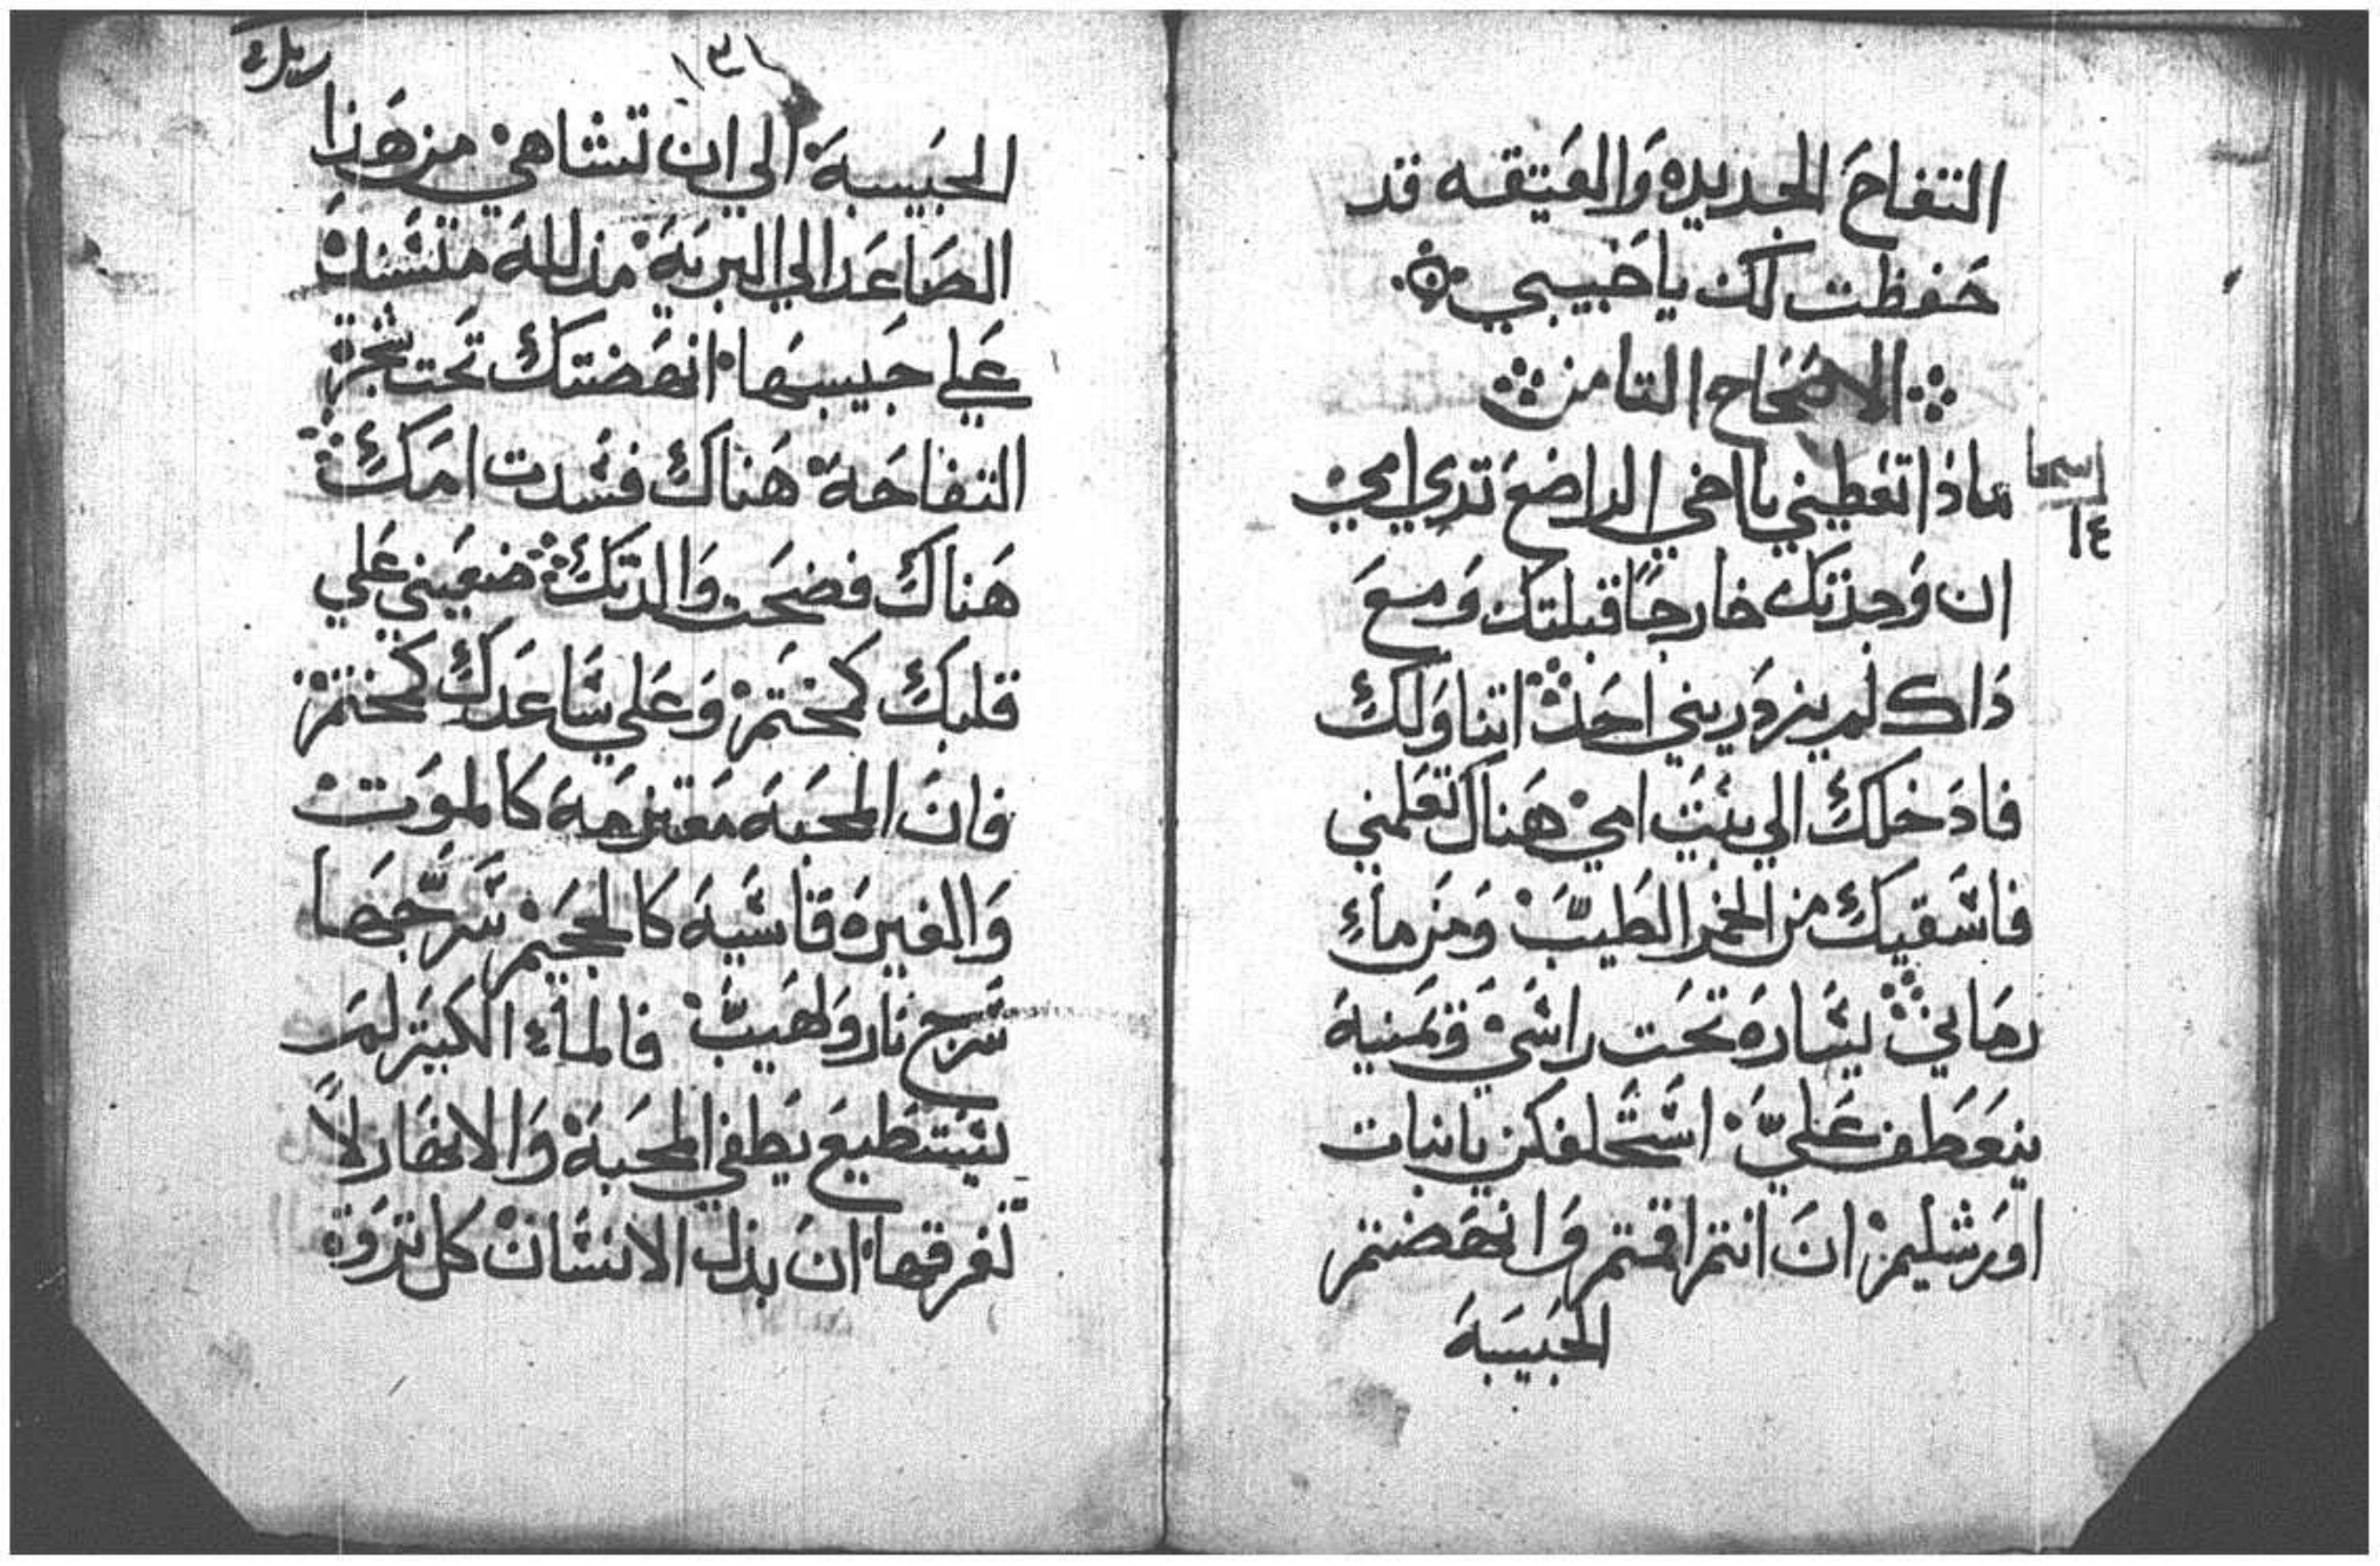 التفاح الجديده والعتيقه قد
حفظت لك يا حبيبي
الاصحاح التامن
ماذا تعطيني يا اخي الراضع تدي امي
١٤
ان وجدتك خارجًا قبلتك ومع
داك لم يزدريني احد اتناولك
فادخلك الي بيت امي هناك تعلمني
فاسقيك من الخمر الطيب ومن ماء
رماني يساره تحت راسي ويمنيه
ينعطف علي استحلفكن يا بنات
اورشليم ان انتم اقمتم وانهضتم
الحبيبة
الحبيبة الي ان تشاهي من هذا
الصاعد الي البرية مدللة متسنك
علي حبيبها انهضتك تحت شجرة
التفاحة هناك فسدت امك
هناك فضحت والدتك ضعيني علي
قلبك كمختم وعلي ساعدك كمختم
فان المحبة معتزمة كالموت
والغيره قاسية كالجحيم سرجها
سرج نار ولهيب فالماء الكبير لم
يستطيع يطفي المحبة والانهار لا
تغرقها ان بذل الانسان كل تروة